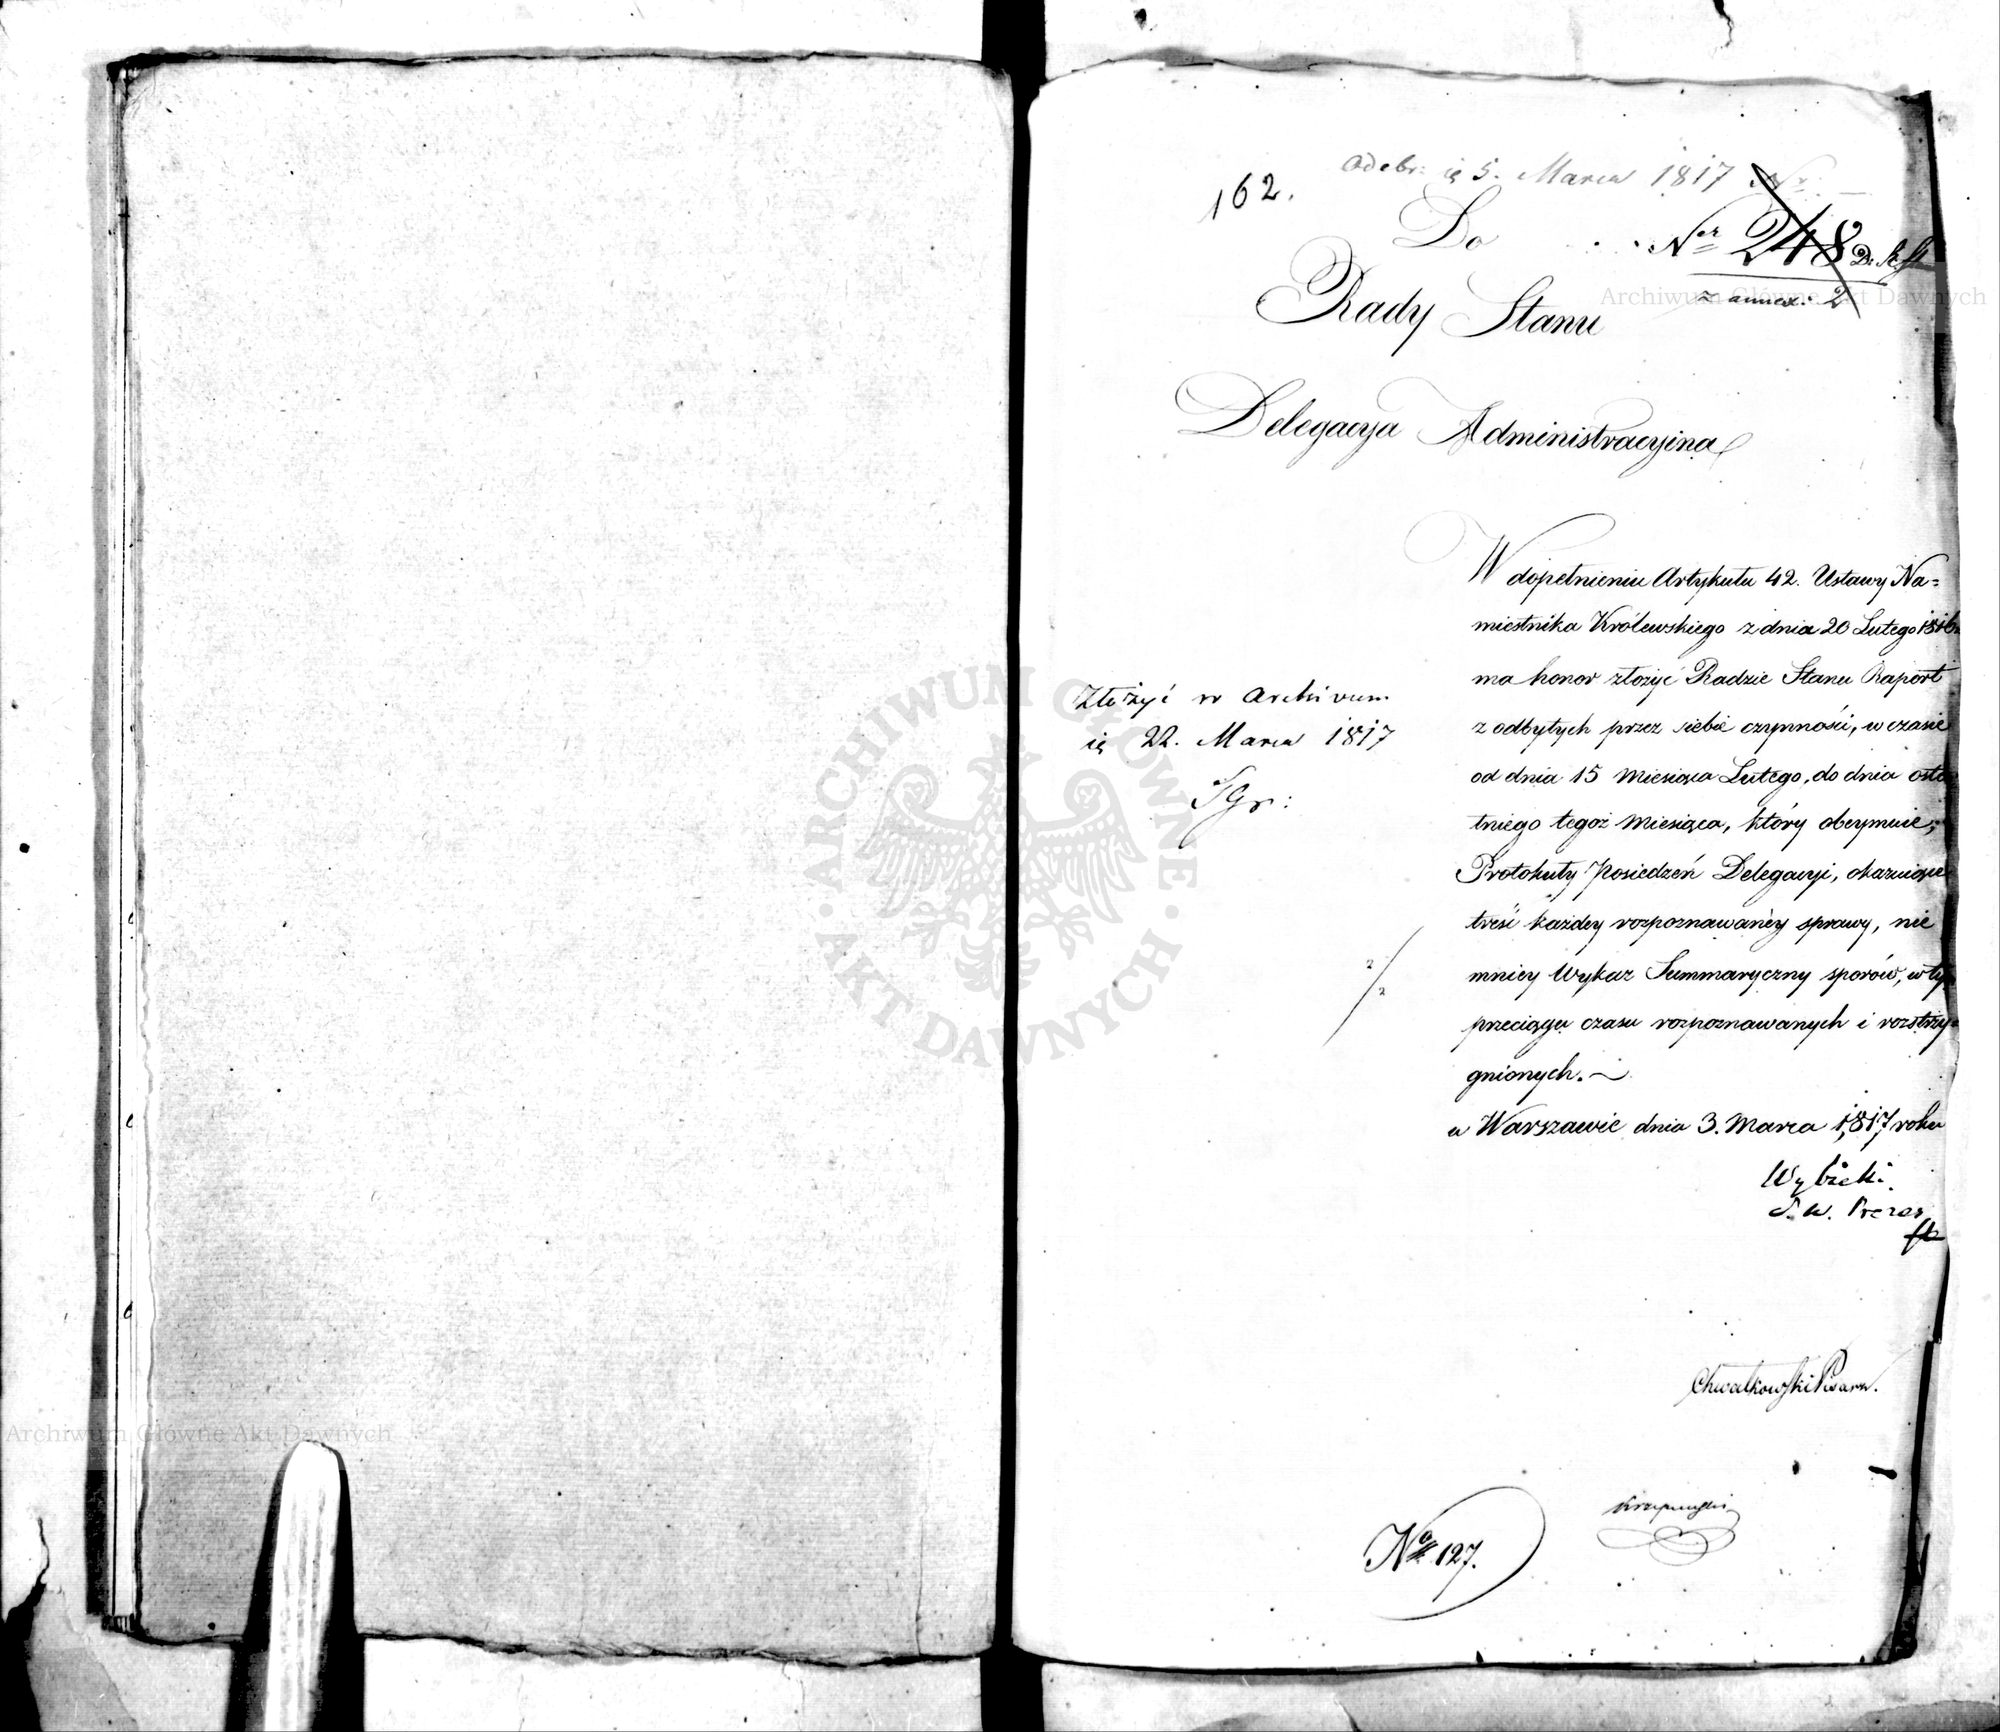 162.
Odebr: is 5. Marca 1817 Nr
Do
Ner 248 D. R. St
z annex: 2
Rady Stanu
Delegacya Administracyina
W dopełnieniu Artykułu 42. Ustawy Na=
miestnika Królewskiego z dnia 20 Lutego 1816
ma honor złożyć Radzie Stanu Raport
z odbytych przez siebie czynności, w czasie
od dnia 15 Miesiąca Lutego, do dnia osta
tniego tegoż Miesiąca, który obeymuie;
Protokuły Posiedzeń Delegacyi, okazuiące
treść każdey rozpoznawanéy sprawy, nie
mniey Wykaz Summaryczny sporów, w ty
przeciągu czasu rozpoznawanych i rozstrzy=
gnionych.
w Warszawie dnia 3. Marca 1817 roku
Złożyć w Archivum
is 22. Marca 1817
Gr:
2/2
Wybicki
S. W. Prezes
Chwalkowski Pisarz.
No 127.
ARCHIWUM GŁÓWNE
AKT DAWNYCH
Archiwum Główne Akt Dawnych
Archiwum Główne Akt Dawnych